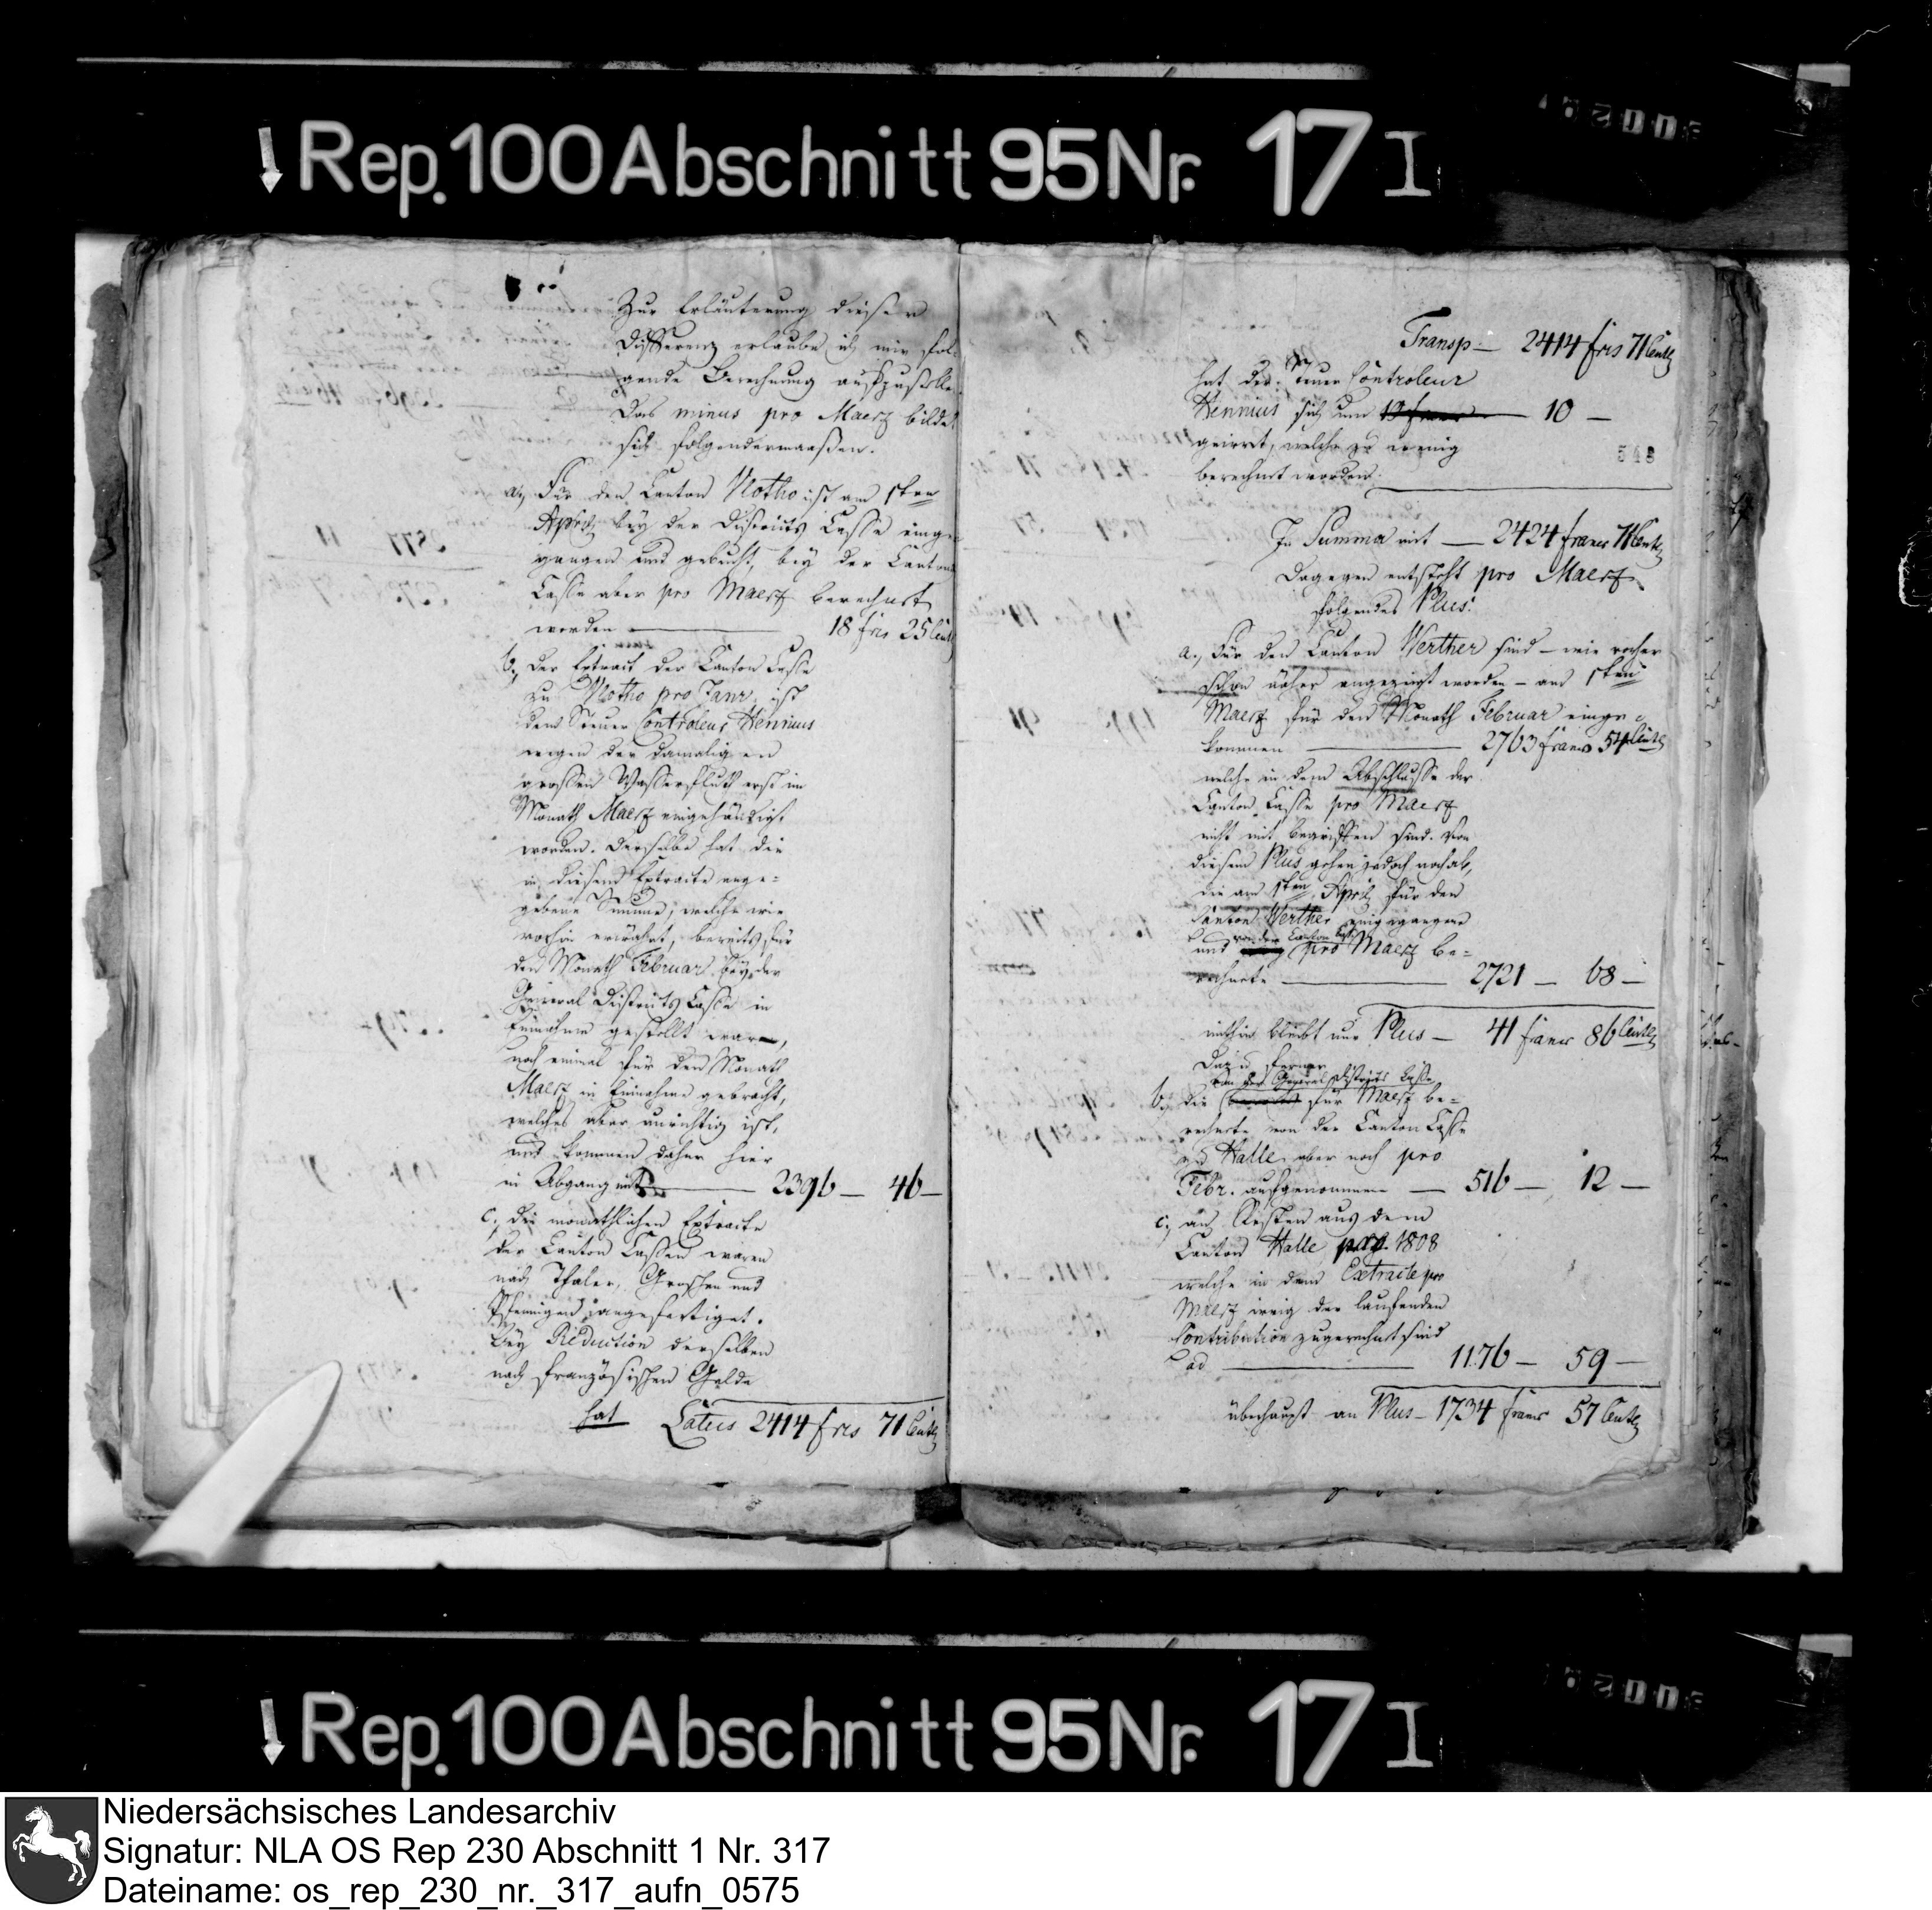 Rep. 100 Abschnitt 95 Nr. 17 I
Zur Erläuterung dieser
Differenz erlaube ich mir fol-
gende Berechnung aufzustelle
Das minus pro Maerz bildet
sich folgendermaaßen.
a., Für den Canton Vlotho ist am 1sten
April bey der Districts Casse einge-
gangen und gebucht, bey der Canton
Casse aber pro Maerz berechnet
worden — 18 frcs 25 Cent
b., Der Extract der Canton Casse
zu Vlotho pro Janr. ist
dem Steuer Controleur Hennius
wegen der damaligen
grossen Wasserfluth erst im
Monath Maerz eingehändigt
worden. Derselbe hat die
in diesem Extracte ange-
gebene Summe, welche wie
vorhin erwähnt, bereits für
den Monath Februar bey der
General Districts Casse in
Einnahme gestellt war,
noch einmal für den Monath
Maerz in Einnahme gebracht,
welches aber unrichtig ist,
und kommen daher hier
in Abgang mit — 2396 — 46 —
c., die monathlichen Extracte
der Canton Cassen waren
nach Thaler, Groschen und
Pfennigen angefertiget.
Bey Reduction derselben
nach französischen Gelde
hat Latus 2414 frcs 71 Cent
Transp — 2414 frcs 71 Cent
hat der Steuer Controleur
Hennius sich um 10 —
geirrt, welche zu wenig
berechnet worden.
548
In Summa mit — 2424 francs 71 Cent
Dagegen entsteht pro Maerz
folgendes Plus:
a., Für den Canton Werther sind — wie vorher
schon näher angezeigt worden — am 1sten
Maerz für den Monath Februar einge-
kommen — 2763 francs 54 Cent
welche in dem Abschlusse der
Canton Casse pro Maerz
nicht mit begriffen sind. Von
diesem Plus gehen jedoch noch ab,
die am 1sten April für den
Canton Werther eingegangene
und von der Canton Casse pro Maerz be-
rechnete — 2721 — 68 —
mithin bleibt nur Plus — 41 francs 86 Cent
Dazu ferner
von der General Districts Casse
b., die für Maerz be-
rechnete von der Canton Casse
zu Halle aber noch pro
Febr. aufgenommene — 516 — 12 —
c., an Resten aus dem
Canton Halle pro 1808
welche in dem Extracte pro
Maerz irrig der laufenden
Contribution zugerechnet sind
ad — 1176 — 59 —
überhaupt an Plus — 1734 francs 57 Cent
Rep. 100 Abschnitt 95 Nr. 17 I
Niedersächsisches Landesarchiv
Signatur: NLA OS Rep 230 Abschnitt 1 Nr. 317
Dateiname: os_rep_230_nr._317_aufn_0575